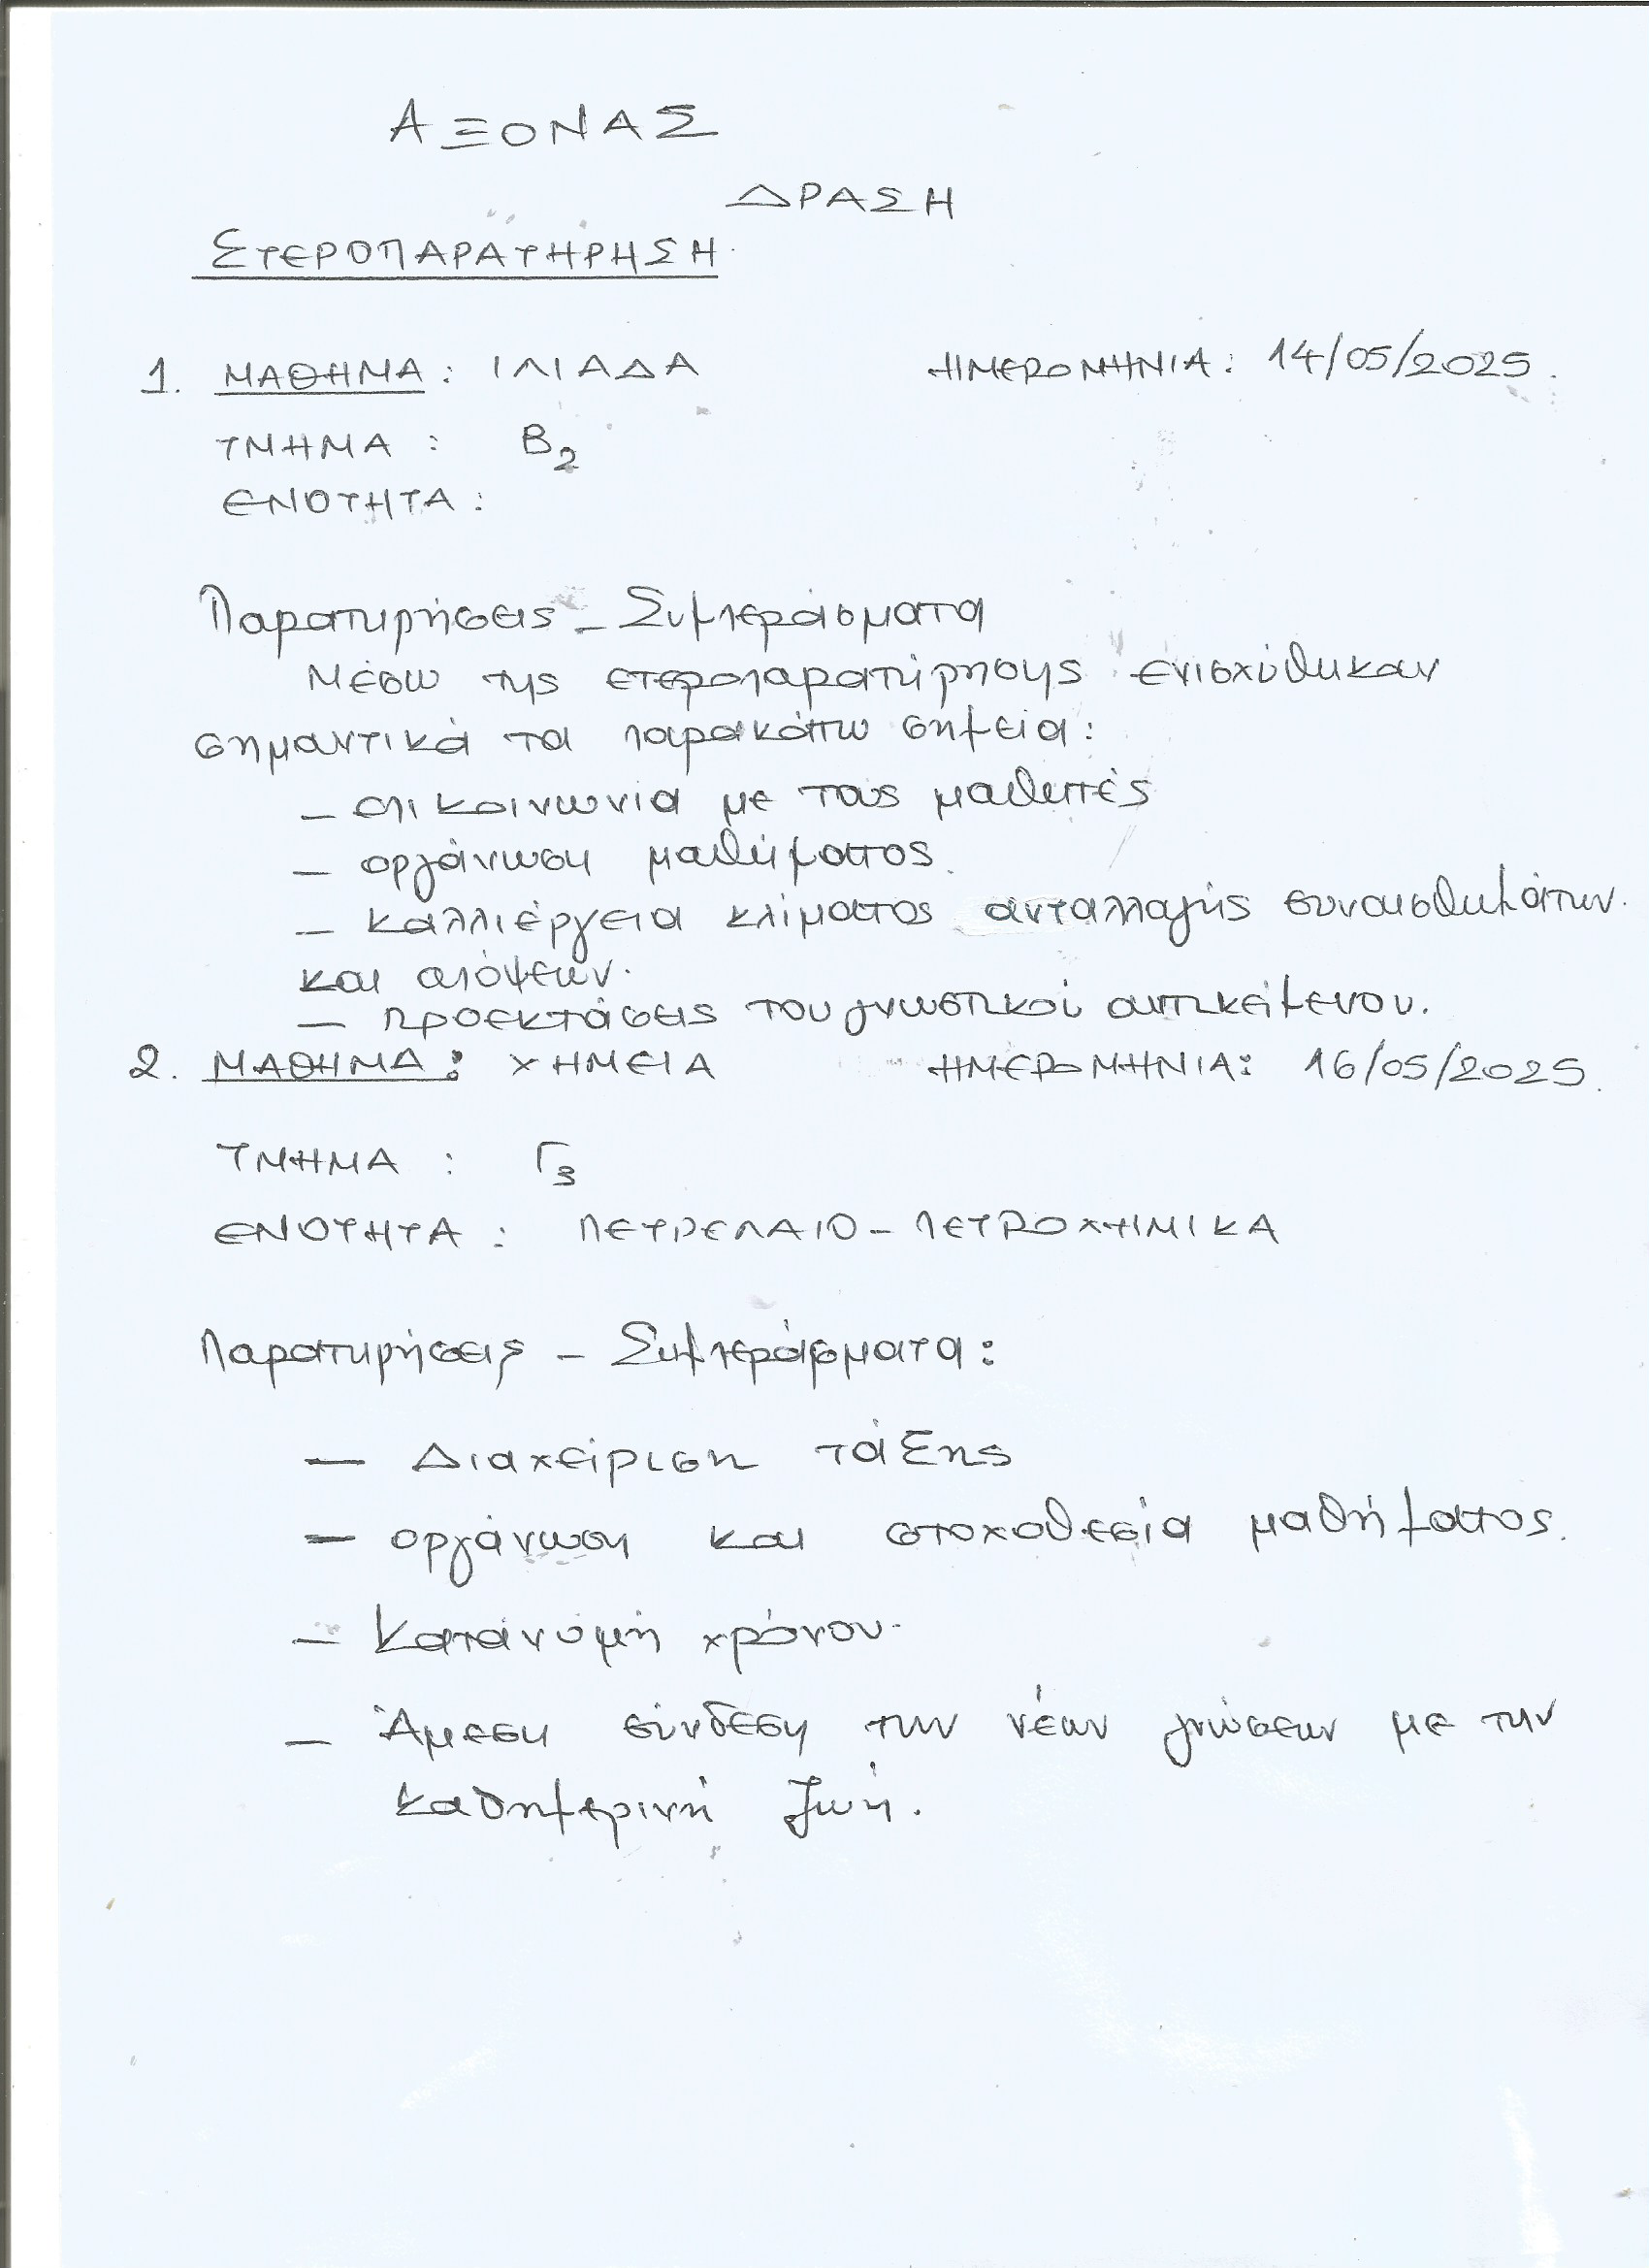 ΑΞΟΝΑΣ
ΔΡΑΣΗ
ΕΤΕΡΟΠΑΡΑΤΗΡΗΣΗ
1. ΜΑΘΗΜΑ: ΙΛΙΑΔΑ ΗΜΕΡΟΜΗΝΙΑ: 14/05/2025.
ΤΜΗΜΑ: Β2
ΕΝΟΤΗΤΑ:
Παρατηρήσεις - Συμπεράσματα
Μέσω της ετεροπαρατήρησης ενισχύθηκαν
σημαντικά τα παρακάτω σημεία:
- επικοινωνία με τους μαθητές
- οργάνωση μαθήματος.
- καλλιέργεια κλίματος ανταλλαγής συναισθημάτων.
και απόψεων.
- προεκτάσεις του γνωστικού αντικείμενου.
2. ΜΑΘΗΜΑ: ΧΗΜΕΙΑ ΗΜΕΡΟΜΗΝΙΑ: 16/05/2025.
ΤΜΗΜΑ: Γ3
ΕΝΟΤΗΤΑ: ΠΕΤΡΕΛΑΙΟ - ΠΕΤΡΟΧΗΜΙΚΑ
Παρατηρήσεις - Συμπεράσματα:
- Διαχείριση τάξης
- οργάνωση και στοχοθεσία μαθήματος.
- Κατάνομή χρόνου.
- Άμεση σύνδεση των νέων γνώσεων με την
καθημερινή ζωή.